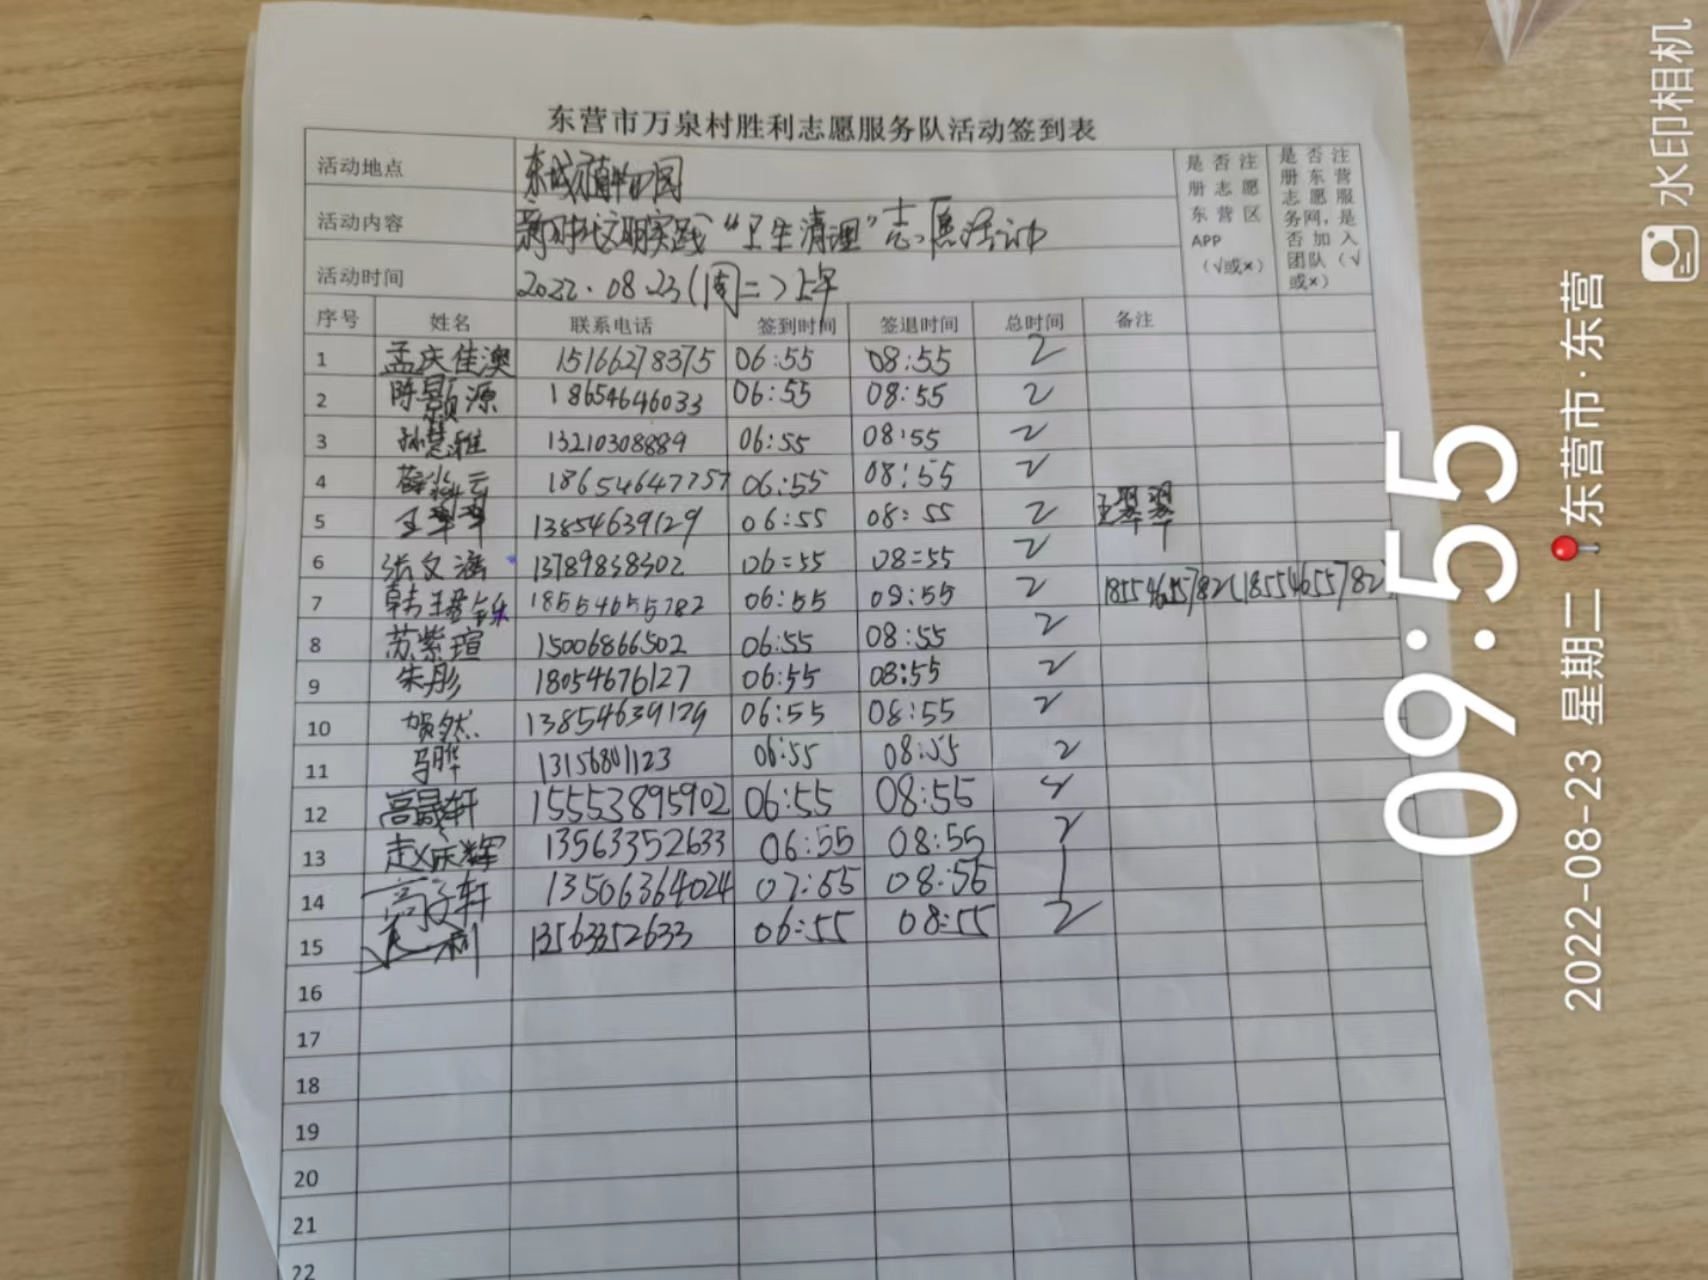 东营市万泉村胜利志愿服务队活动签到表
活动地点 东城植物园
活动内容 新时代文明实践“卫生清理”志愿活动
活动时间 2022.08.23(周二)上午
是否注册志愿东营区APP(√或×)
是否注册东营志愿服务网,是否加入团队(√或×)
序号 姓名 联系电话 签到时间 签退时间 总时间 备注
1 孟庆佳澳 15166278375 06:55 08:55 2
2 陈颢源 18654646033 06:55 08:55 2
3 孙慧雅 13210308889 06:55 08:55 2
4 薛淑云 18654647757 06:55 08:55 2
5 王翠翠 13854639129 06:55 08:55 2 王翠翠
6 张文涵 13789838302 06:55 08:55 2
7 18554655782 06:55 08:55 2 18554655782(18554655782)
8 苏紫瑄 15006866502 06:55 08:55 2
9 朱彤 18054676127 06:55 08:55 2
10 贺然 13854639129 06:55 08:55 2
11 马骅 13156801123 06:55 08:55 2
12 高晟轩 15553895902 06:55 08:55 2
13 赵庆辉 13563352633 06:55 08:55 2
14 高子轩 13506364024 07:55 08:55 1
15 13563352633 06:55 08:55 2
16
17
18
19
20
21
22
09:55
2022-08-23 星期二 东营市·东营
水印相机